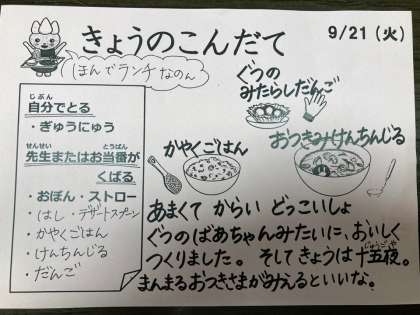 きょうのこんだて
9/21 (火)
ほんでランチなのん
ぐつの
みたらしだんご
じぶん
自分でとる
・ぎゅうにゅう
せんせい とうばん
先生またはお当番が
くばる
・おぼん・ストロー
・はし・デザートスプーン
・かやくごはん
・けんちんじる
・だんご
かやくごはん
おつきみけんちんじる
あまくて からい どっこいしょ
ぐつのばあちゃんみたいに、おいしく
つくりました。そしてきょうは十五夜。
じゅうごや
まんまるおつきさまがみえるといいな。